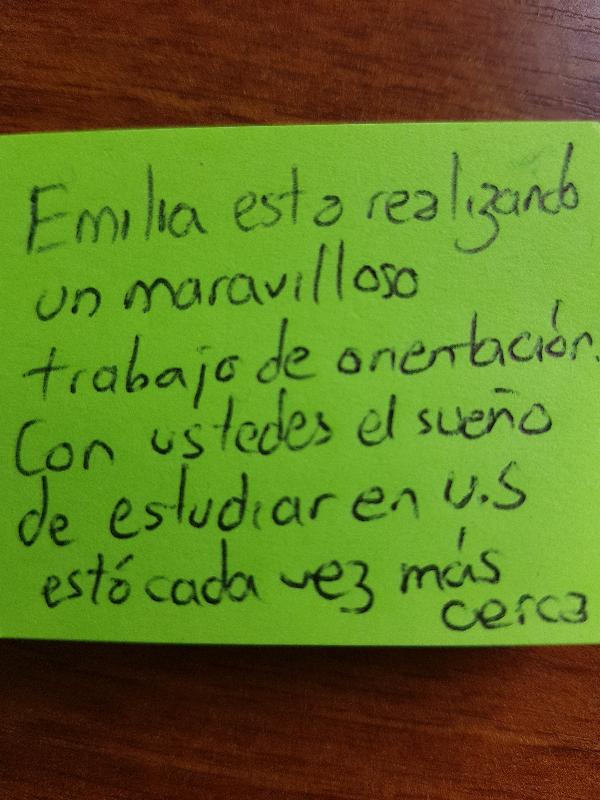 Emilia esta realizando
un maravilloso
trabajo de orientación.
Con ustedes el sueño
de estudiar en U.S
está cada vez más
cerca